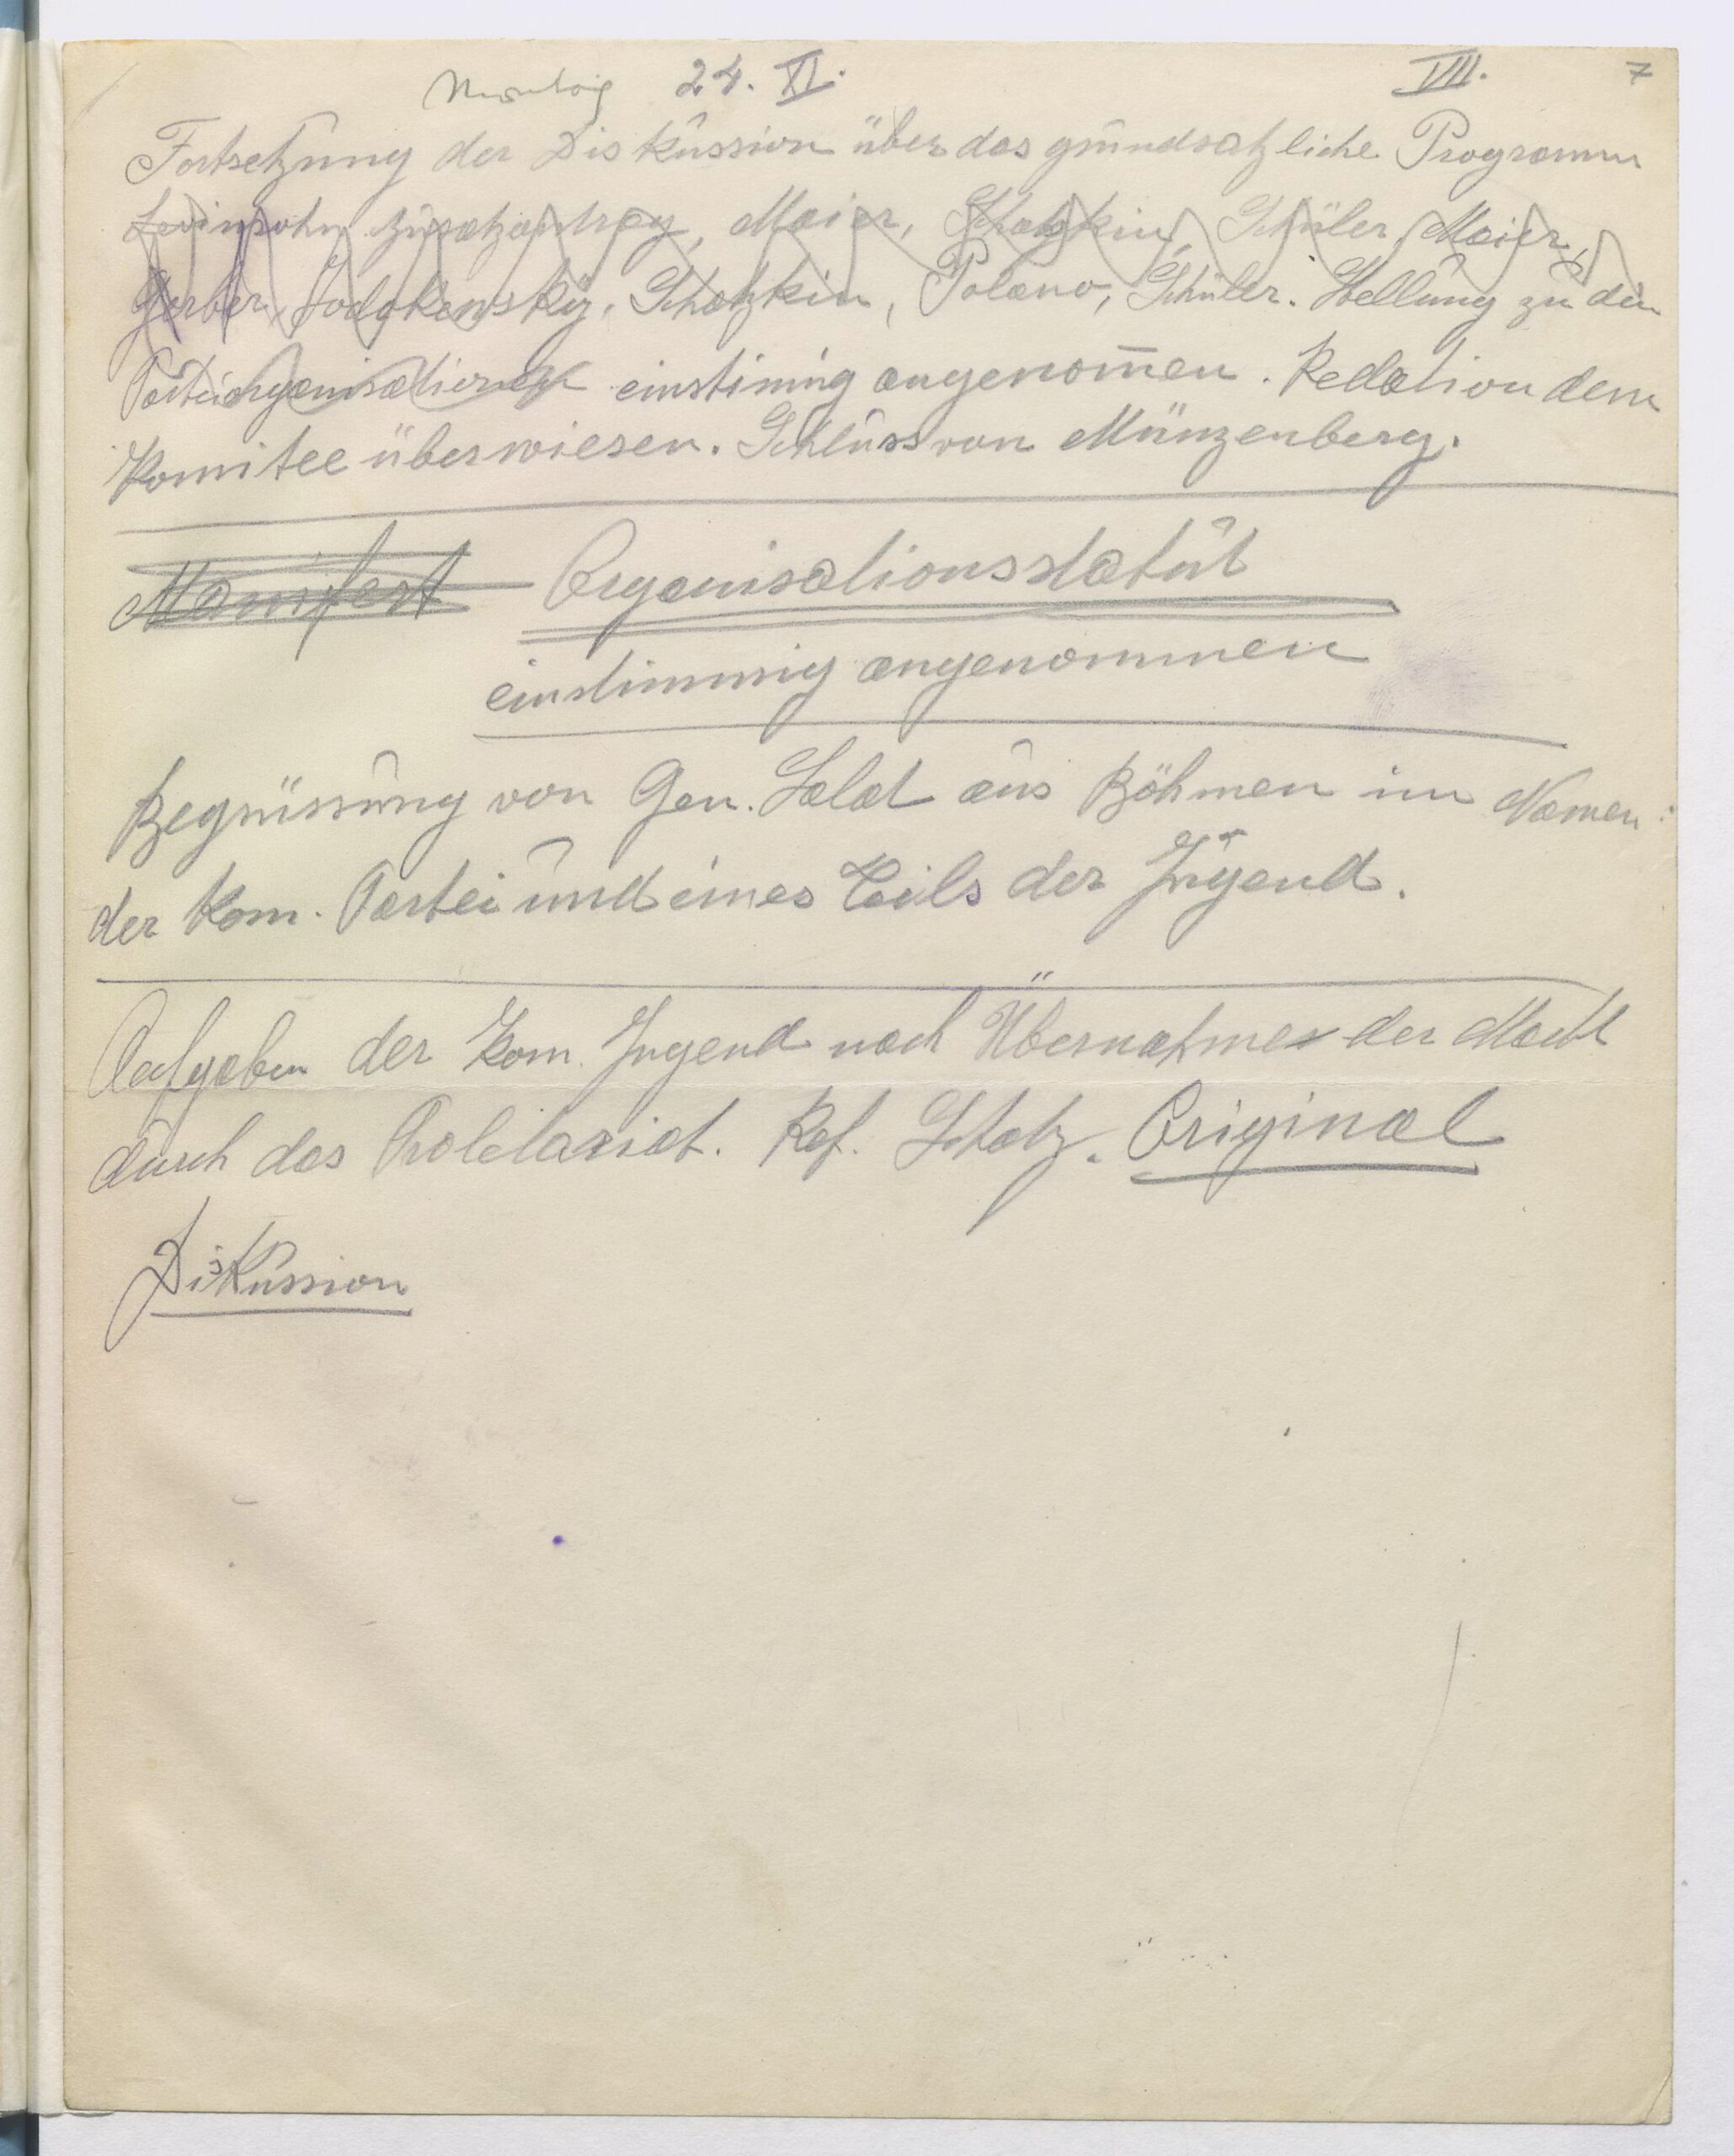 Montag 24. XI. VII. 7
Fortsetzung der Diskussion über das grundsatzliche Programm
Levinsohn Zusatzantrag, Maier, Schatzkin, Schüler, Maier,
Gerber, Schatzkin, Polano, Schüler. Stellung zu den
Parteiorganisationen einstimig angenom̅en. Redation dem
Komitee überwiesen. Schluss von Münzenberg.
Manifest Organisationsstatut
einstimmig angenommen
Begrüssung von Gen. aus Böhmen im Namen
der Kom. Partei und eines Teils der Jugend.
Aufgaben der Kom. Jugend nach Übernahme der Macht
durch das Proletariat. Ref. Schatz. Original
Diskussion